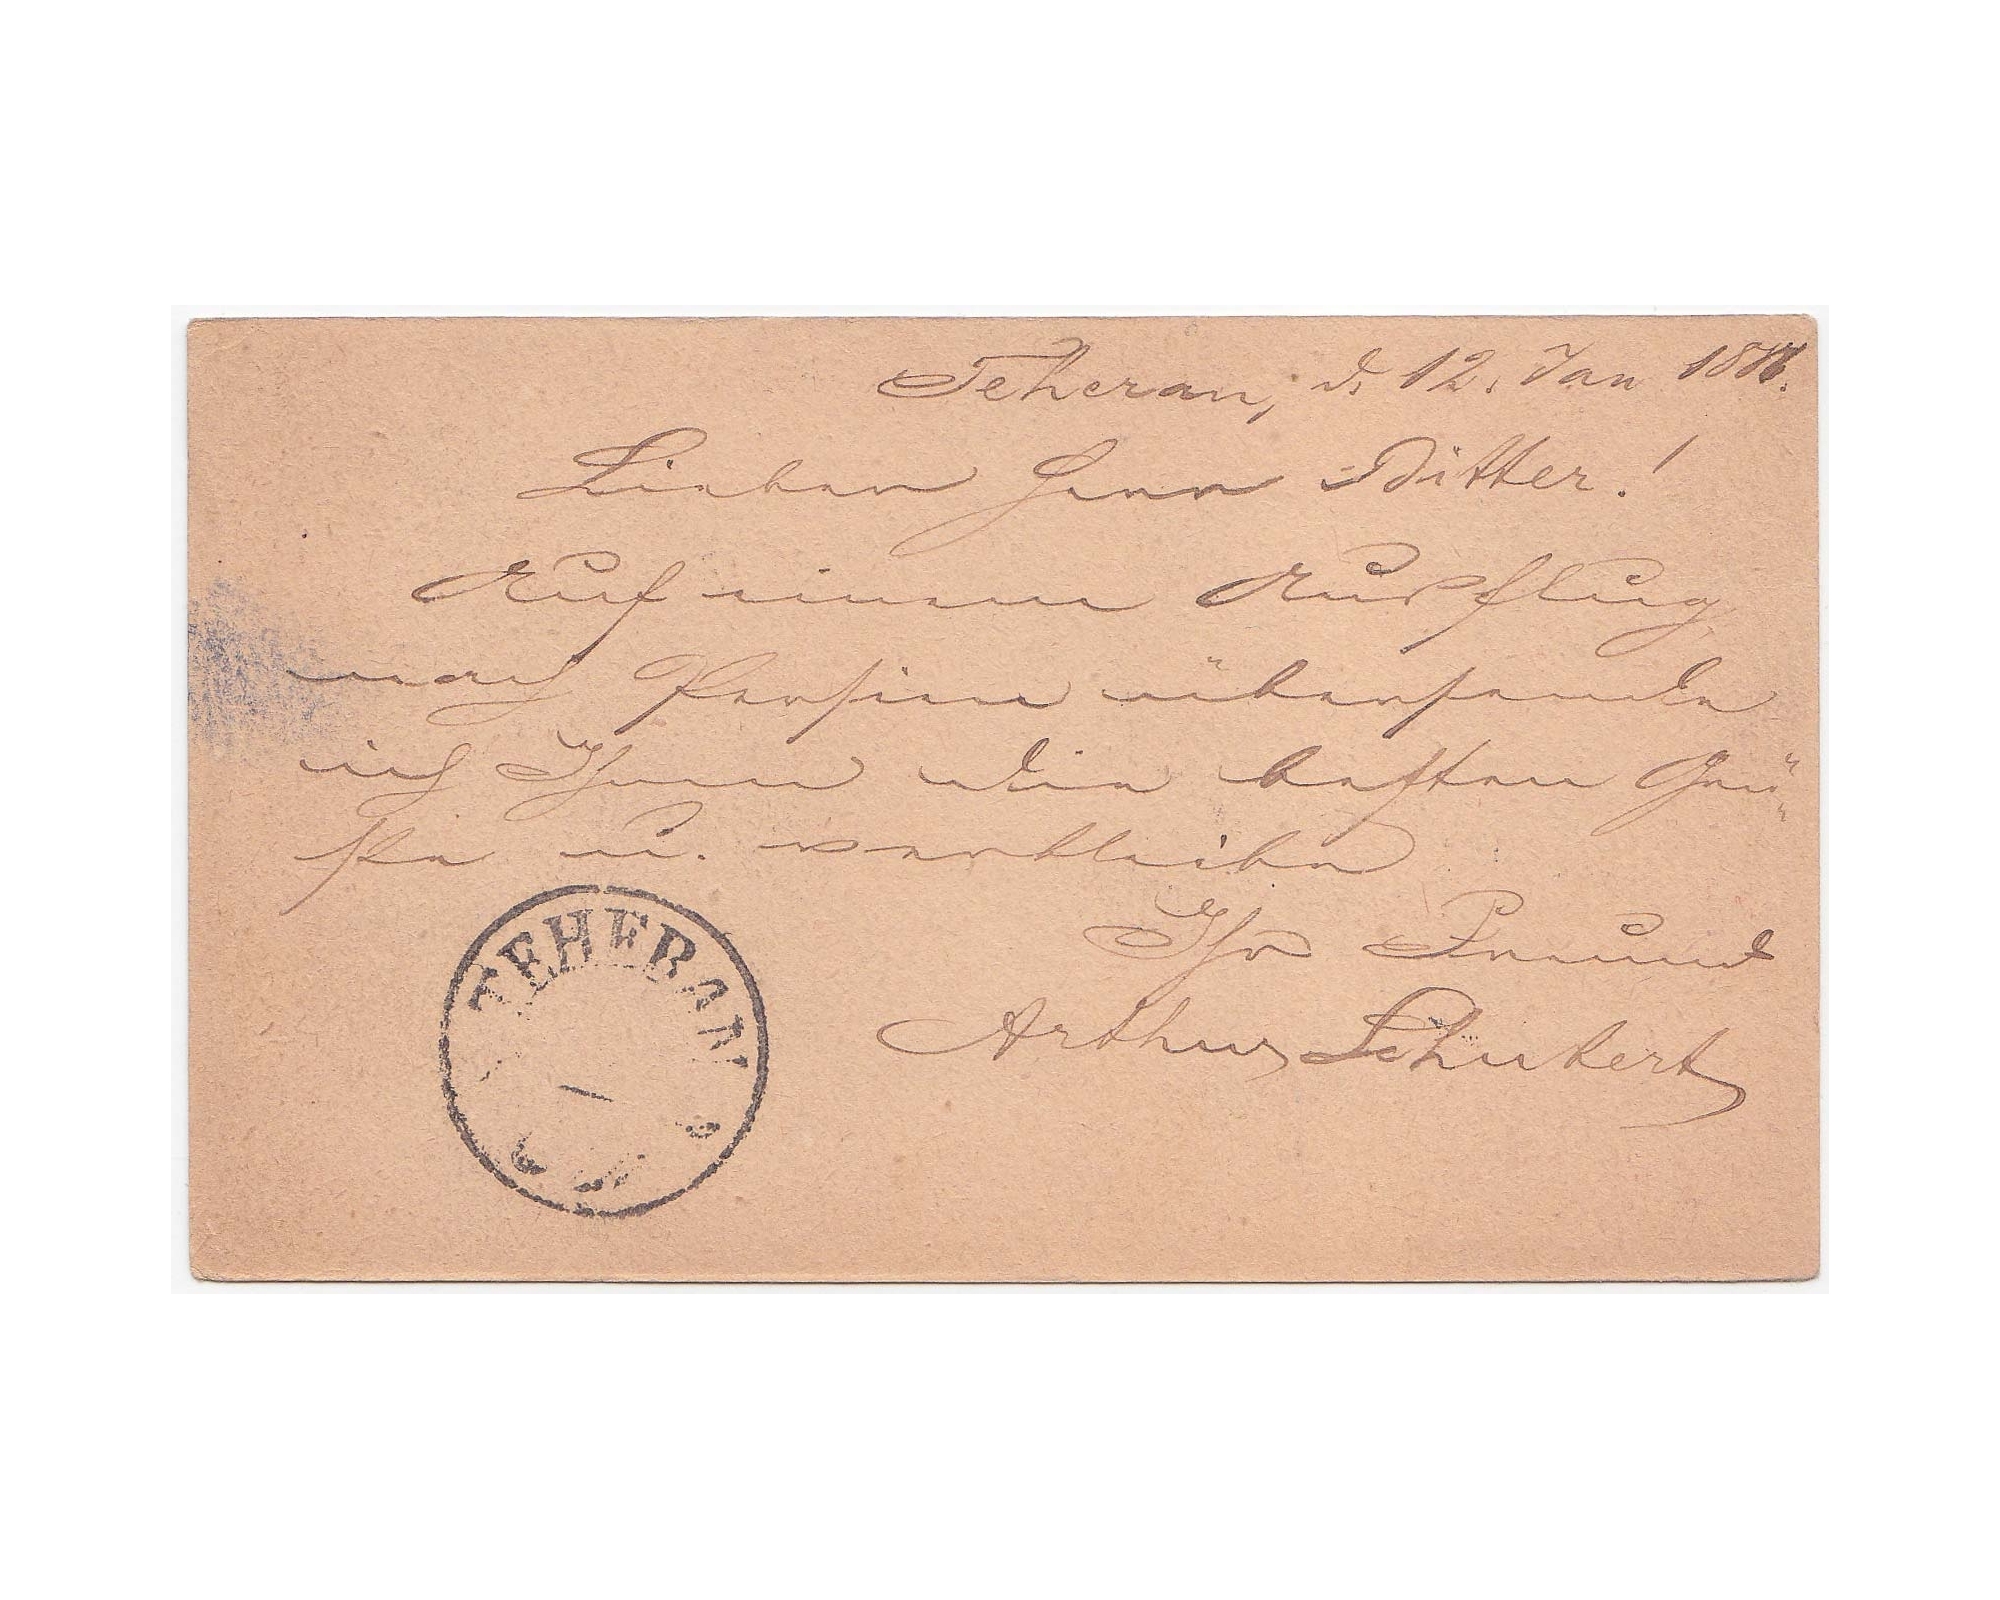 Teheran, d. 12. Jan
Lieber Herr Ditter!
Auf einem Ausflug
nach Persien übersende
ich Ihnen die besten Grü-
ße u. verbleibe
Ihr Freund
Arthur Schubert
TEHERAN